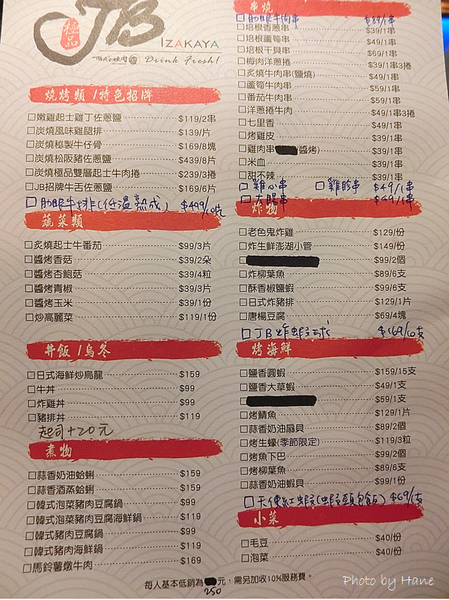 極品
JB
IZAKAYA
Drink Fresh!
燒烤類 / 特色招牌
□嫩雞起士雞丁佐蔥鹽 $119/2串
□炭燒風味雞腿排 $139/片
□炭燒極製牛仔骨 $169/8塊
□炭燒松阪豬佐蔥鹽 $439/8片
□炭燒極品雙層起士牛肉捲 $239/3捲
□JB招牌牛舌佐蔥鹽 $169/6片
□肋眼牛排(低溫熟成) $499
蔬菜類
□炙燒起士牛番茄 $99/3片
□醬烤香菇 $39/2朵
□醬烤杏鮑菇 $39/4粒
□醬烤青椒 $39/3片
□醬烤玉米 $39/1份
□炒高麗菜 $119/1份
丼飯 / 烏冬
□日式海鮮炒烏龍 $159
□牛丼 $99
□炸雞丼 $99
□豬排丼 $119
起司+20元
煮物
□蒜香奶油蛤蜊 $159
□蒜香酒蒸蛤蜊 $159
□韓式泡菜豬肉豆腐鍋 $99
□韓式泡菜豬肉豆腐海鮮鍋 $119
□韓式豬肉豆腐鍋 $99
□韓式豬肉海鮮鍋 $119
□馬鈴薯燉牛肉 $169
串燒
□肋眼牛肉串 $89/1串
□培根香蔥串 $39/1串
□培根蘆筍串 $49/1串
□培根干貝串 $69/1串
□梅肉洋蔥捲 $39/1串3捲
□炙燒牛肉串(鹽燒) $49/1串
□蘆筍牛肉串 $59/1串
□番茄牛肉串 $59/1串
□洋蔥捲牛肉 $49/1串3捲
□七里香 $39/1串
□烤雞皮 $39/1串
□雞肉串 醬烤) $39/1串
□米血 $39/1串
□甜不辣 $39/1串
□雞心串 □雞胗串 $49/1串
腿串 $49/1串
炸物
□老色鬼炸雞 $129/份
□炸生鮮澎湖小管 $149/份
$99/2個
□炸柳葉魚 $89/6支
□酥香椒鹽蝦 $99/6支
□日式炸豬排 $129/1片
□唐楊豆腐 $69/4塊
□JB炸蝦球 $169/10支
烤海鮮
□鹽香圓蝦 $159/15支
□鹽香大草蝦 $49/1支
$59/1支
□烤鯖魚 $129/1片
□蒜香奶油扇貝 $89/2個
□烤生蠔(季節限定) $119/3粒
□烤魚下巴 $99/2個
□烤柳葉魚 $89/6支
□蒜香奶油蝦貝 $99/1份
□天使紅蝦(蝦頭飯) $69/支
小菜
□毛豆 $40/份
□泡菜 $40/份
每人基本低銷為 元，需另加收10%服務費。
250
Photo by Hane